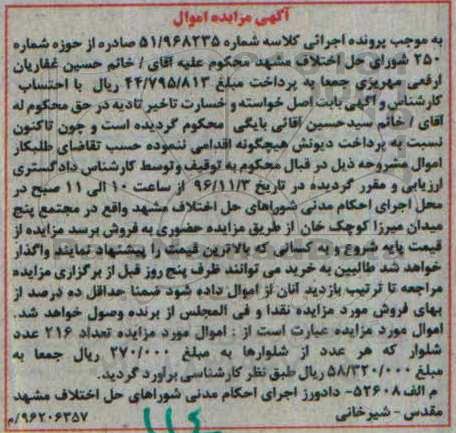 آگهی مزایده اموال
به موجب پرونده اجرائی کلاسه شماره ۵۱/۹۶۸۲۳۵ صادره از حوزه شماره
۲۵۰ شورای حل اختلاف مشهد محکوم علیه آقای / خانم حسین غفاریان
ارفعی مهریزی جمعا به پرداخت مبلغ ۴۴/۷۹۵/۸۱۳ ریال با احتساب
کارشناس و آگهی بابت اصل خواسته و خسارت تاخیر تادیه در حق محکوم له
آقای / خانم سیدحسین آقائی بایگی محکوم گردیده است و چون تاکنون
نسبت به پرداخت دیونش هیچگونه اقدامی ننموده حسب تقاضای طلبکار
اموال مشروحه ذیل در قبال محکوم به توقیف وتوسط کارشناس دادگستری
ارزیابی و مقرر گردیده در تاریخ ۹۶/۱۱/۳ از ساعت ۱۰ الی ۱۱ صبح در
محل اجرای احکام مدنی شوراهای حل اختلاف مشهد واقع در مجتمع پنج
میدان میرزا کوچک خان از طریق مزایده حضوری به فروش برسد مزایده از
قیمت پایه شروع و به کسانی که بالاترین قیمت را پیشنهاد نمایند واگذار
خواهد شد طالبین به خرید می توانند ظرف پنج روز قبل از برگزاری مزایده
مراجعه تا ترتیب بازدید آنان از اموال داده شود ضمنا حداقل ده درصد از
بهای فروش مورد مزایده نقدا و فی المجلس از برنده وصول خواهد شد.
اموال مورد مزایده عبارت است از : اموال مورد مزایده تعداد ۲۱۶ عدد
شلوار که هر عدد از شلوارها به مبلغ ۲۷۰/۰۰۰ ریال جمعا به
مبلغ ۵۸/۳۲۰/۰۰۰ ریال طبق نظر کارشناسی برآورد گردید.
م الف ۵۲۶۰۸- دادورز اجرای احکام مدنی شوراهای حل اختلاف مشهد
مقدس - شیرخانی
۹۶۲۰۶۳۵۷/م